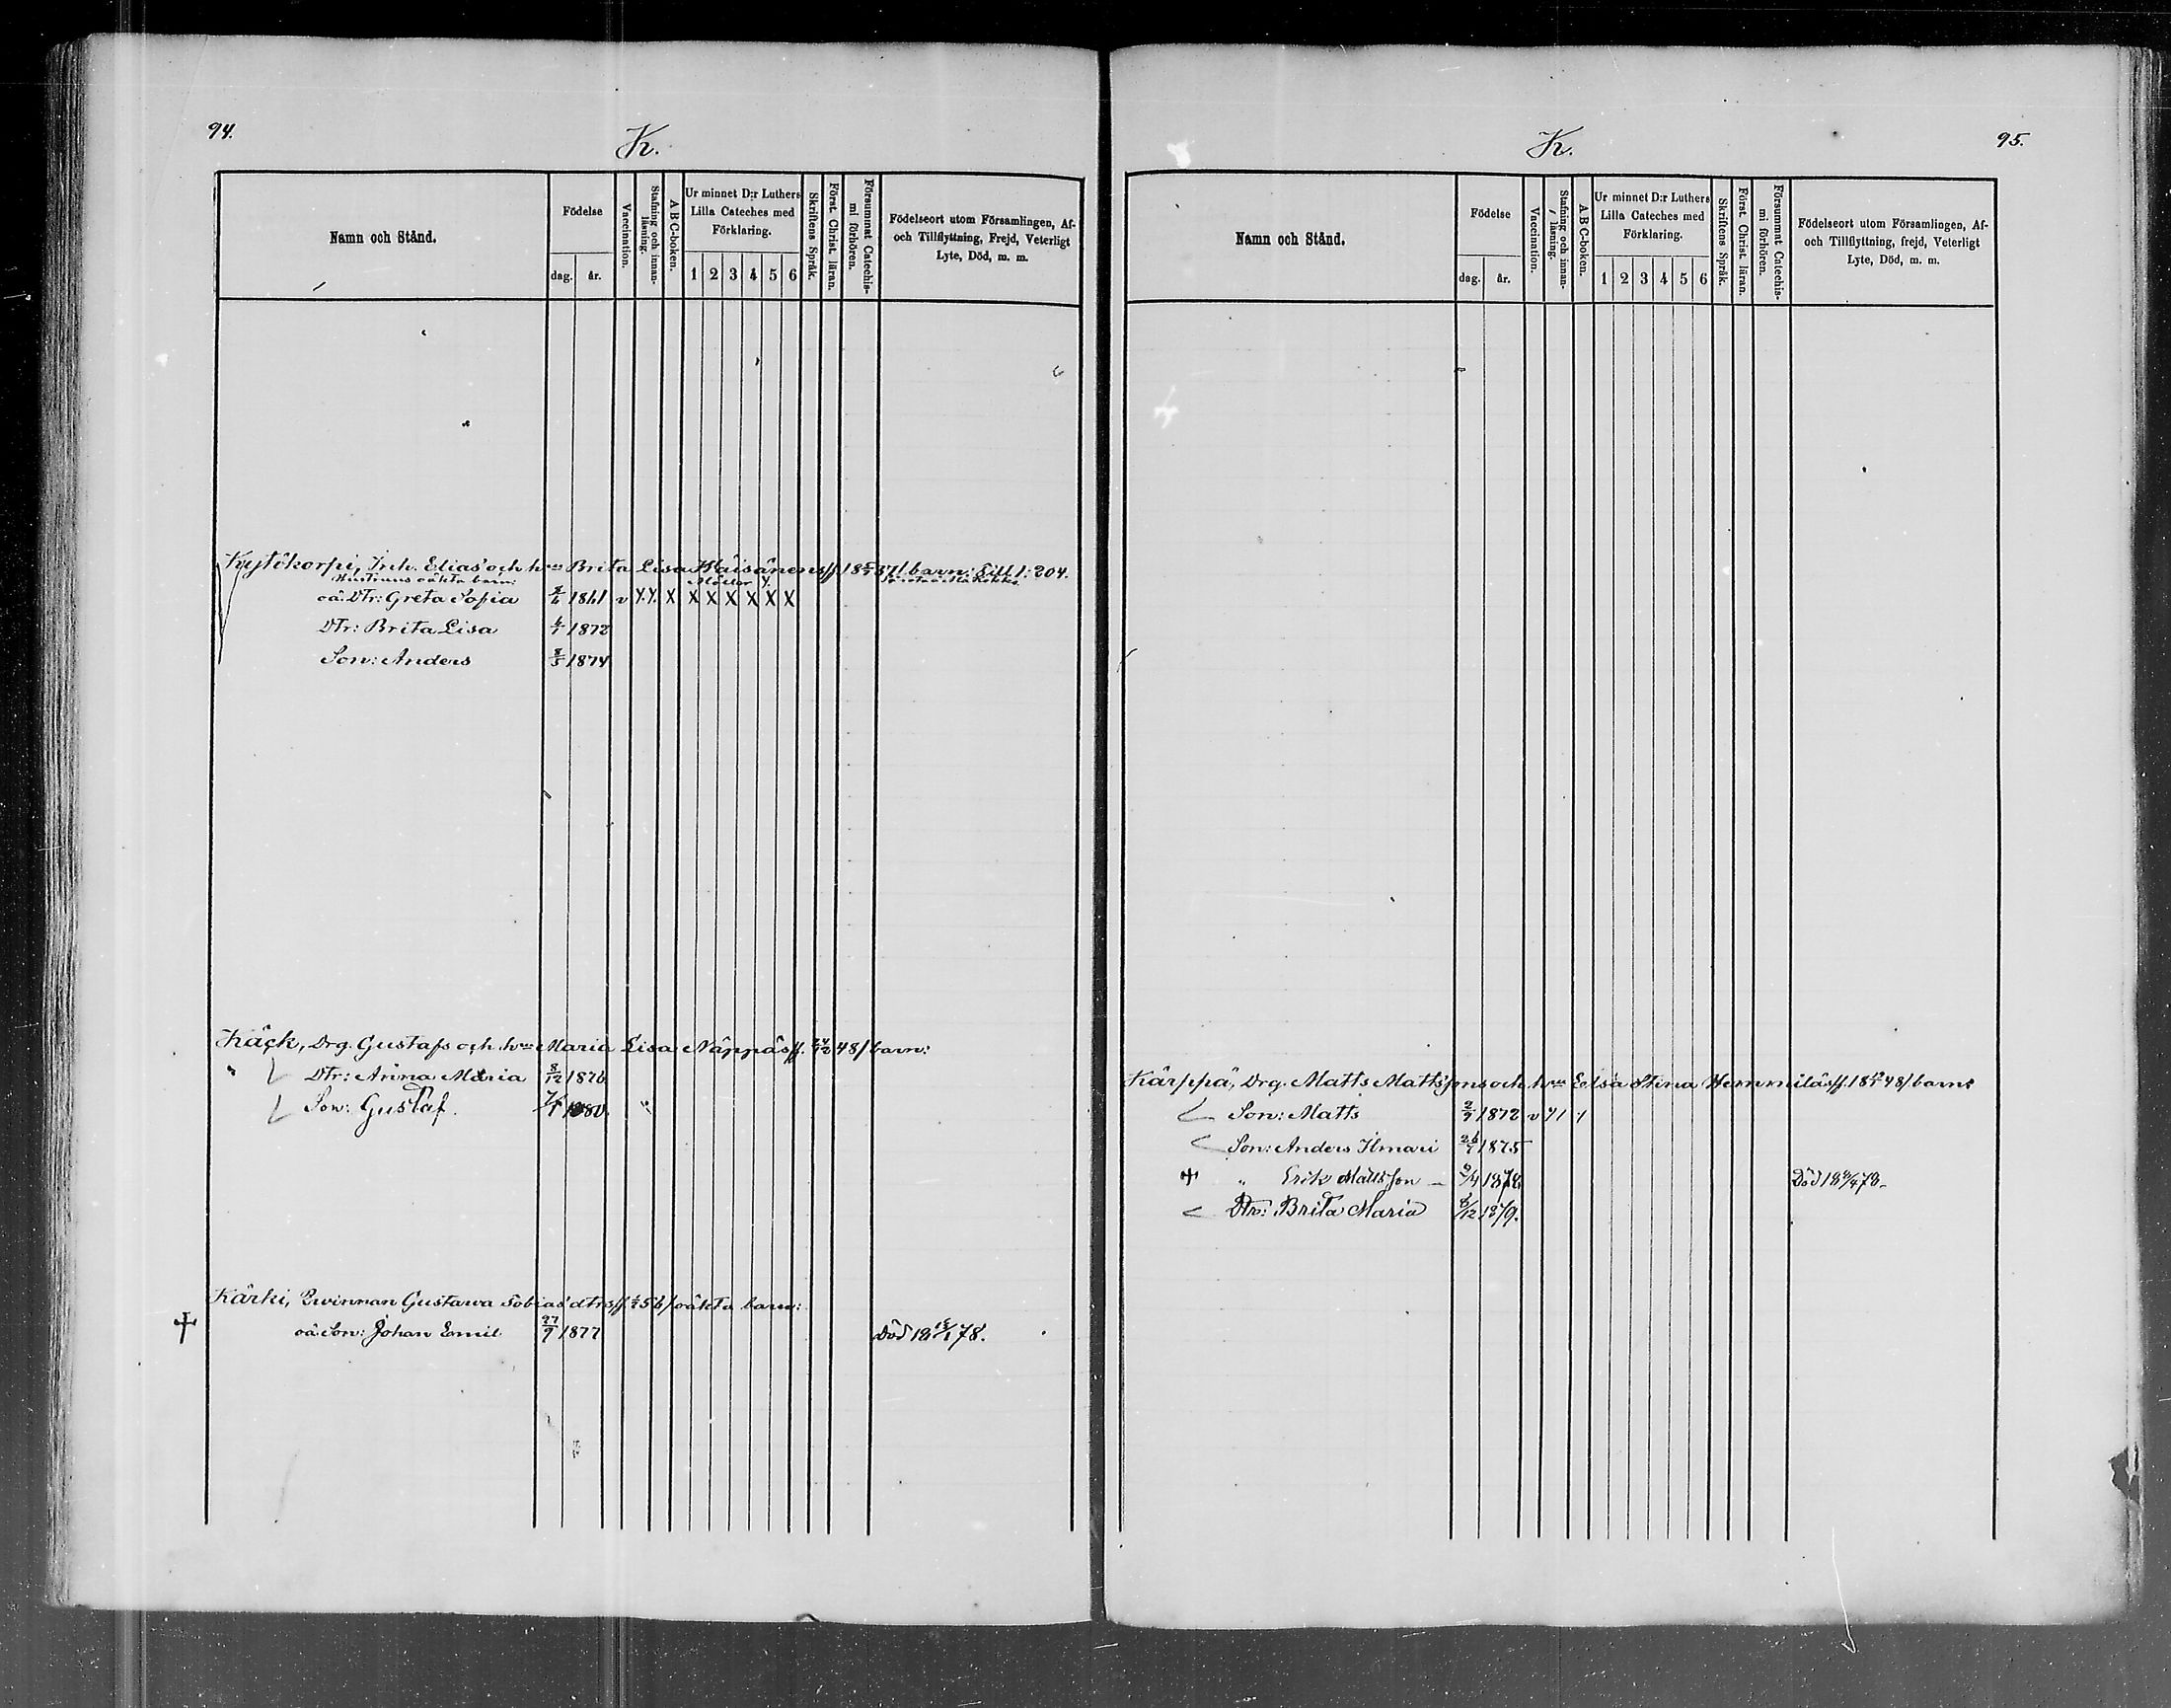 94.
K.
Namn och Stånd.
Födelse
dag.
år.
Vaccination.
Stafning och innan-
läsning.
A B C-boken.
Ur minnet D:r Luthers
Lilla Cateches med
Förklaring.
1 2 3 4 5 6
Skriftens Språk.
Först. Christ. läran.
Försummat Catechis-
mi förhören.
Födelseort utom Församlingen, Af-
och Tillflyttning, Frejd, Veterligt
Lyte, Död, m. m.
Kytökorpi, Inh. Elias' och hns Brita Lisa barn: Till 1: 204.
Hustruns oäkta barn:
oä. Dtr: Greta Sofia 1861 v X X X X X X X
Dtr: Brita Lisa 1872
Son: Anders 8/5 1874
Käck, Drg. Gustafs och hns Maria Lisa Näppäs 48/ barn:
Dtr: Anna Maria 8/12 1876
Son: Gustaf. 1880.
Kärki, Qvinnan Gustawa Tobias'dtrs 56/ oäkta barn:
oä. Son: Johan Emil 27/9 1877 Död 18 78.
95.
K.
Namn och Stånd.
Födelse
dag.
år.
Vaccination.
Stafning och innan-
läsning.
A B C-boken.
Ur minnet D:r Luthers
Lilla Cateches med
Förklaring.
1 2 3 4 5 6
Skriftens Språk.
Först. Christ. läran.
Försummat Catechis-
mi förhören.
Födelseort utom Församlingen, Af-
och Tillflyttning, frejd, Veterligt
Lyte, Död, m. m.
Kärppä, Drg. Matts Matts'sons och hns Elsa Stina Hemmiläs 48/ barn:
Son: Matts 2/9 1872 v
Son: Anders Ilmari 26/7 1875
" Erik Mattsson 9/4 1878 Död 18 78
Dtr: Brita Maria 8/12 1879.